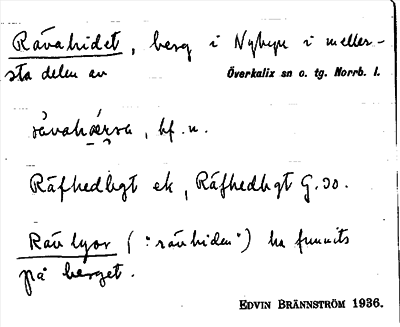 Rävahidet, berg i Nybyn i meller-
sta delen av Överkalix sn o. tg. Norrb. l.
, bf. n.
Räfhedhgt ek, Räfhedhgt G.30.
Räu lyor (: räuhiden:) ha funnits
på berget.
EDVIN BRÄNNSTRÖM 1936.